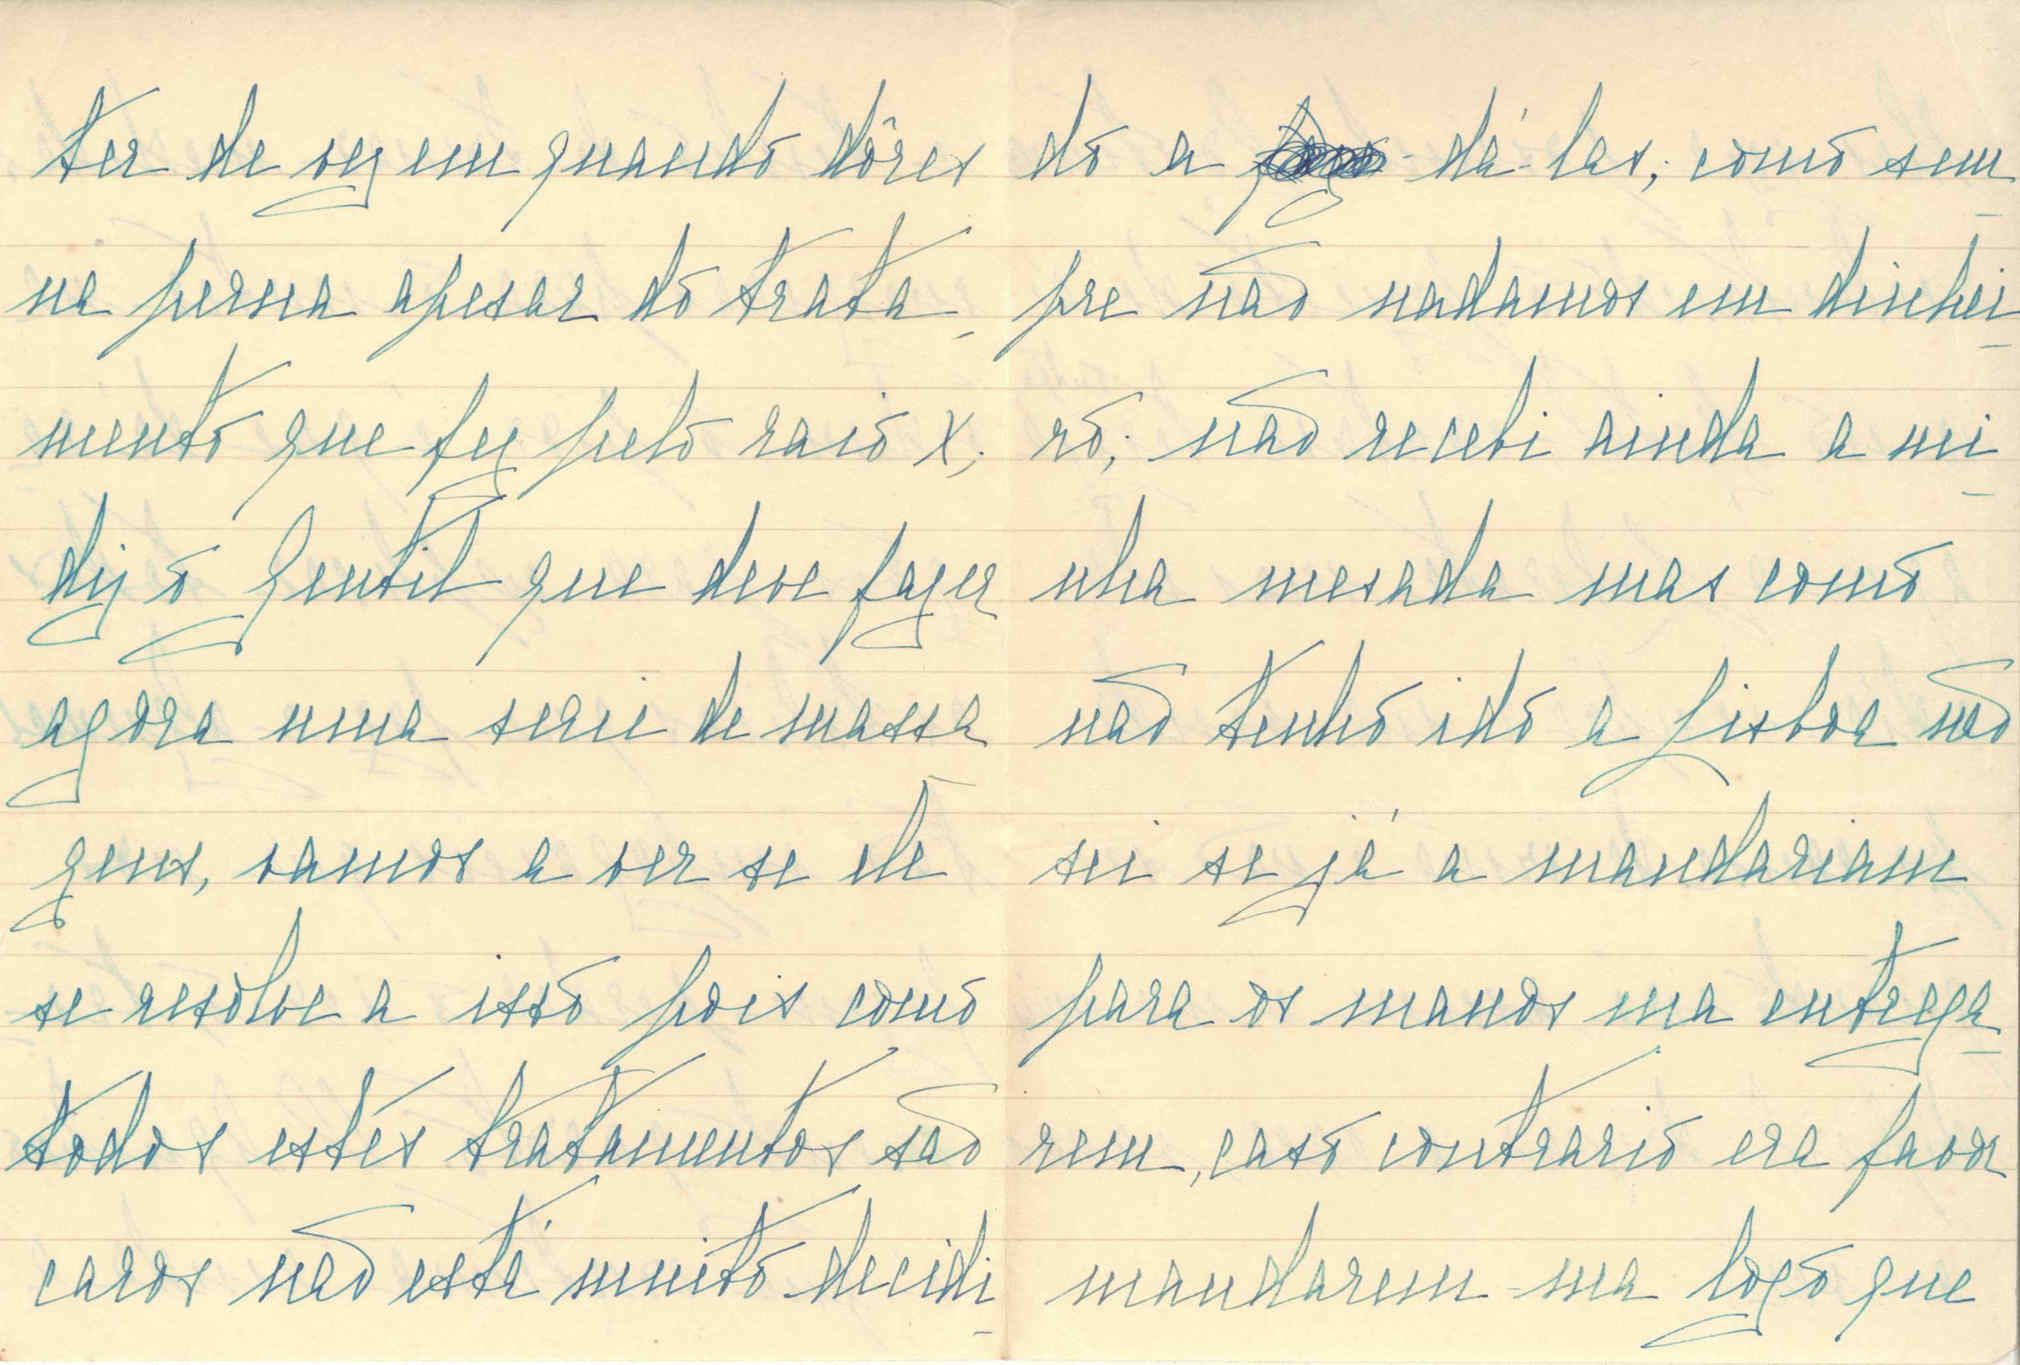 ter de vez em quando dôres
na perna apesar do trata-
mento que fez pelo raio X;
diz o Gentil que deve fazer
agora uma serie de massa
gens, vamos a ver se ele
se resolve a isso pois como
todos estes tratamentos são
caros não está muito decidi-
do a dá-las; como sem-
pre não nadamos em dinhei-
ro; não recebi ainda a mi-
nha mesada mas como
não tenho ido a Lisboa não
sei se já a mandariam
para os manos ma entrega-
rem, caso contrario era favor
mandarem-ma logo que